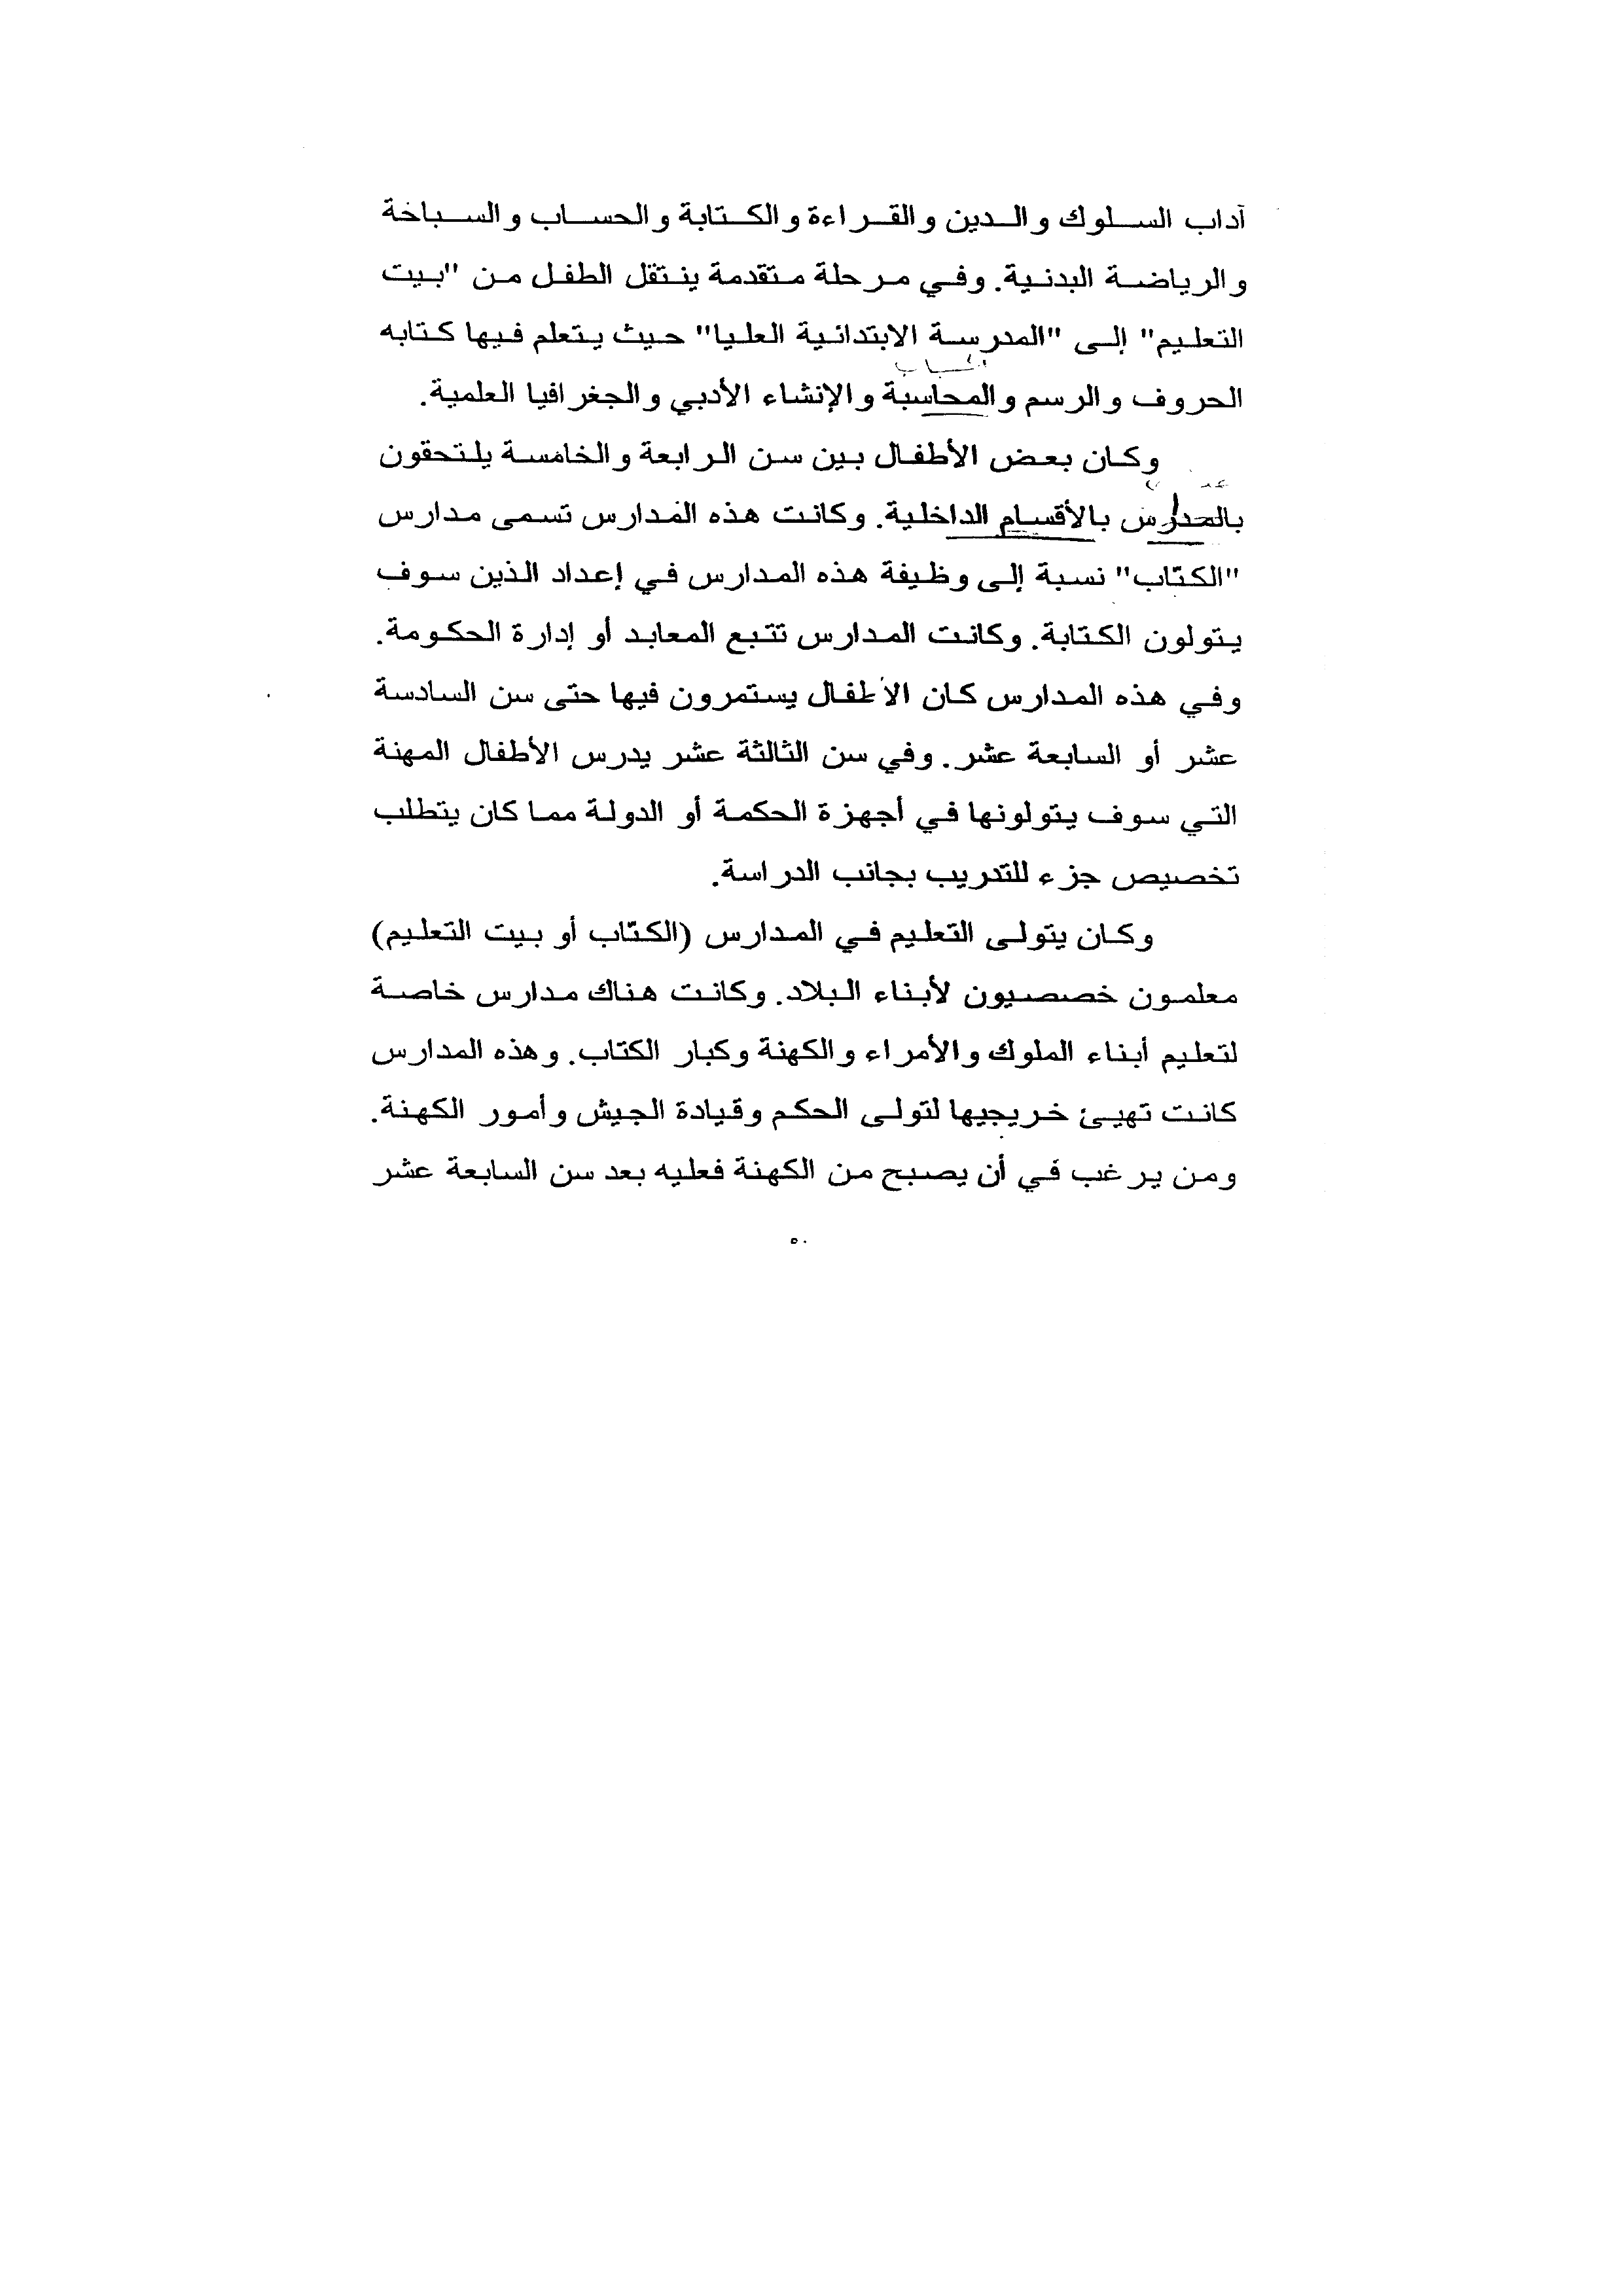 آداب السلوك والدين والقراءة والكتابة والحساب والسباخة
والرياضة البدنية. وفي مرحلة متقدمة ينتقل الطفل من "بيت
التعليم" إلى "المدرسة الابتدائية العليا" حيث يتعلم فيها كتابه
الحروف والرسم والمحاسبة والإنشاء الأدبي والجغرافيا العلمية.
وكان بعض الأطفال بين سن الرابعة والخامسة يلتحقون
بالمدارس بالأقسام الداخلية. وكانت هذه المدارس تسمى مدارس
"الكتّاب" نسبة إلى وظيفة هذه المدارس في إعداد الذين سوف
يتولون الكتابة. وكانت المدارس تتبع المعابد أو إدارة الحكومة.
وفي هذه المدارس كان الأطفال يستمرون فيها حتى سن السادسة
عشر أو السابعة عشر. وفي سن الثالثة عشر يدرس الأطفال المهنة
التي سوف يتولونها في أجهزة الحكمة أو الدولة مما كان يتطلب
تخصيص جزء للتدريب بجانب الدراسة.
وكان يتولى التعليم في المدارس (الكتّاب أو بيت التعليم)
معلمون خصصيون لأبناء البلاد. وكانت هناك مدارس خاصة
لتعليم أبناء الملوك والأمراء والكهنة وكبار الكتاب. وهذه المدارس
كانت تهيئ خريجيها لتولى الحكم وقيادة الجيش وأمور الكهنة.
ومن يرغب في أن يصبح من الكهنة فعليه بعد سن السابعة عشر
٥٠